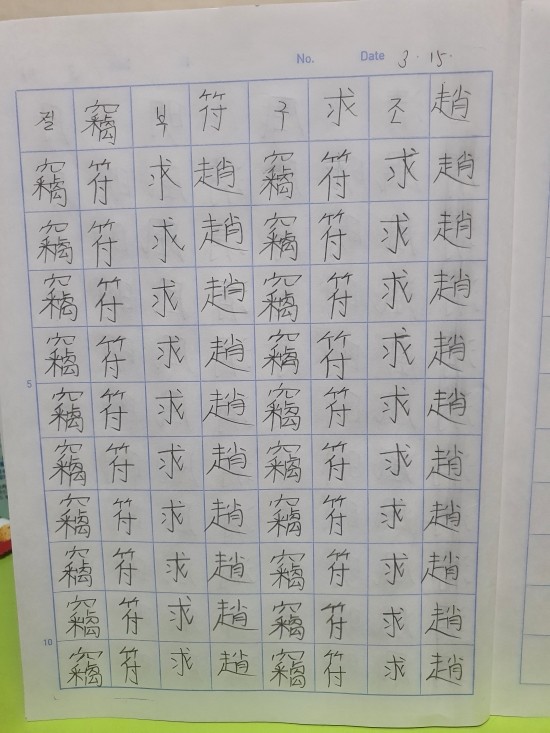 No. Date 3. 15.
절 竊 부 符 구 求 조 趙
竊 符 求 趙 竊 符 求 趙
竊 符 求 趙 竊 符 求 趙
竊 符 求 趙 竊 符 求 趙
竊 符 求 趙 竊 符 求 趙
5
竊 符 求 趙 竊 符 求 趙
竊 符 求 趙 竊 符 求 趙
竊 符 求 趙 竊 符 求 趙
竊 符 求 趙 竊 符 求 趙
竊 符 求 趙 竊 符 求 趙
10
竊 符 求 趙 竊 符 求 趙